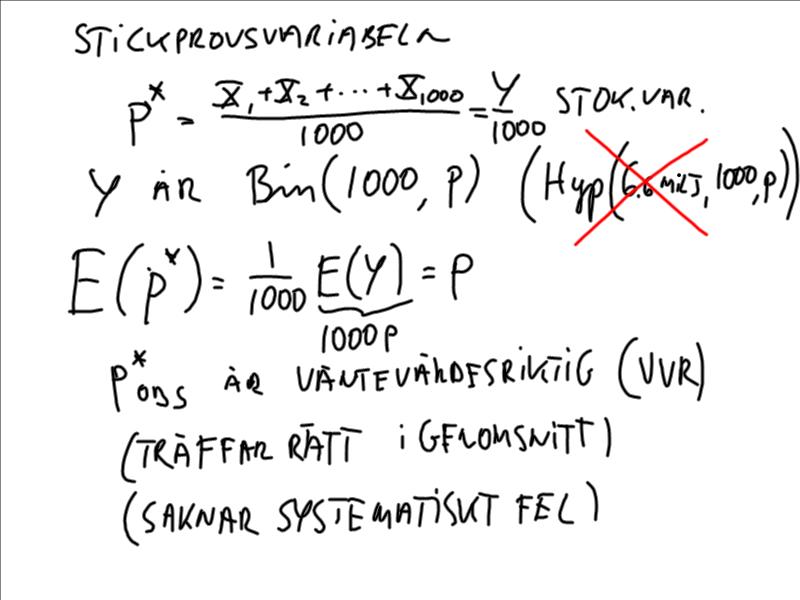 STICKPROVSVARIABELN
P* = X₁+X₂+···+X₁₀₀₀ / 1000 = Y/1000 STOK.VAR.
Y ÄR Bin(1000, p) (Hyp(6.6 MILJ, 1000, p))
E(p*) = 1/1000 E(Y) = p
1000p
p*obs ÄR VÄNTEVÄRDESRIKTIG (VVR)
(TRÄFFAR RÄTT i GENOMSNITT)
(SAKNAR SYSTEMATISKT FEL)